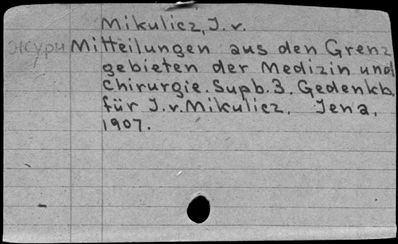 Mikulicz, J. v.
журн Mitteilungen aus den Grenz
gebieten der Medizin und
Chirurgie. Supb. 3. Gedenkb.
für J. v. Mikulicz. Jena,
1907.